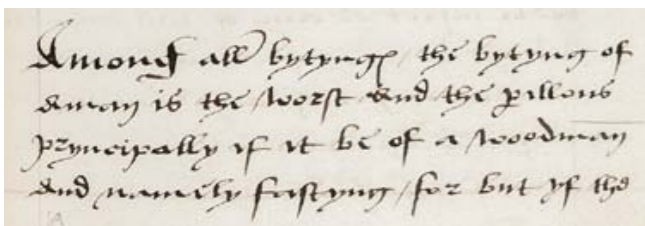 Among all bytyngꝭ / the bytyng of
aman is the / worst and the ꝑillous
pryncipally if it be of a / woodman
and namely fastyng / for but yf the